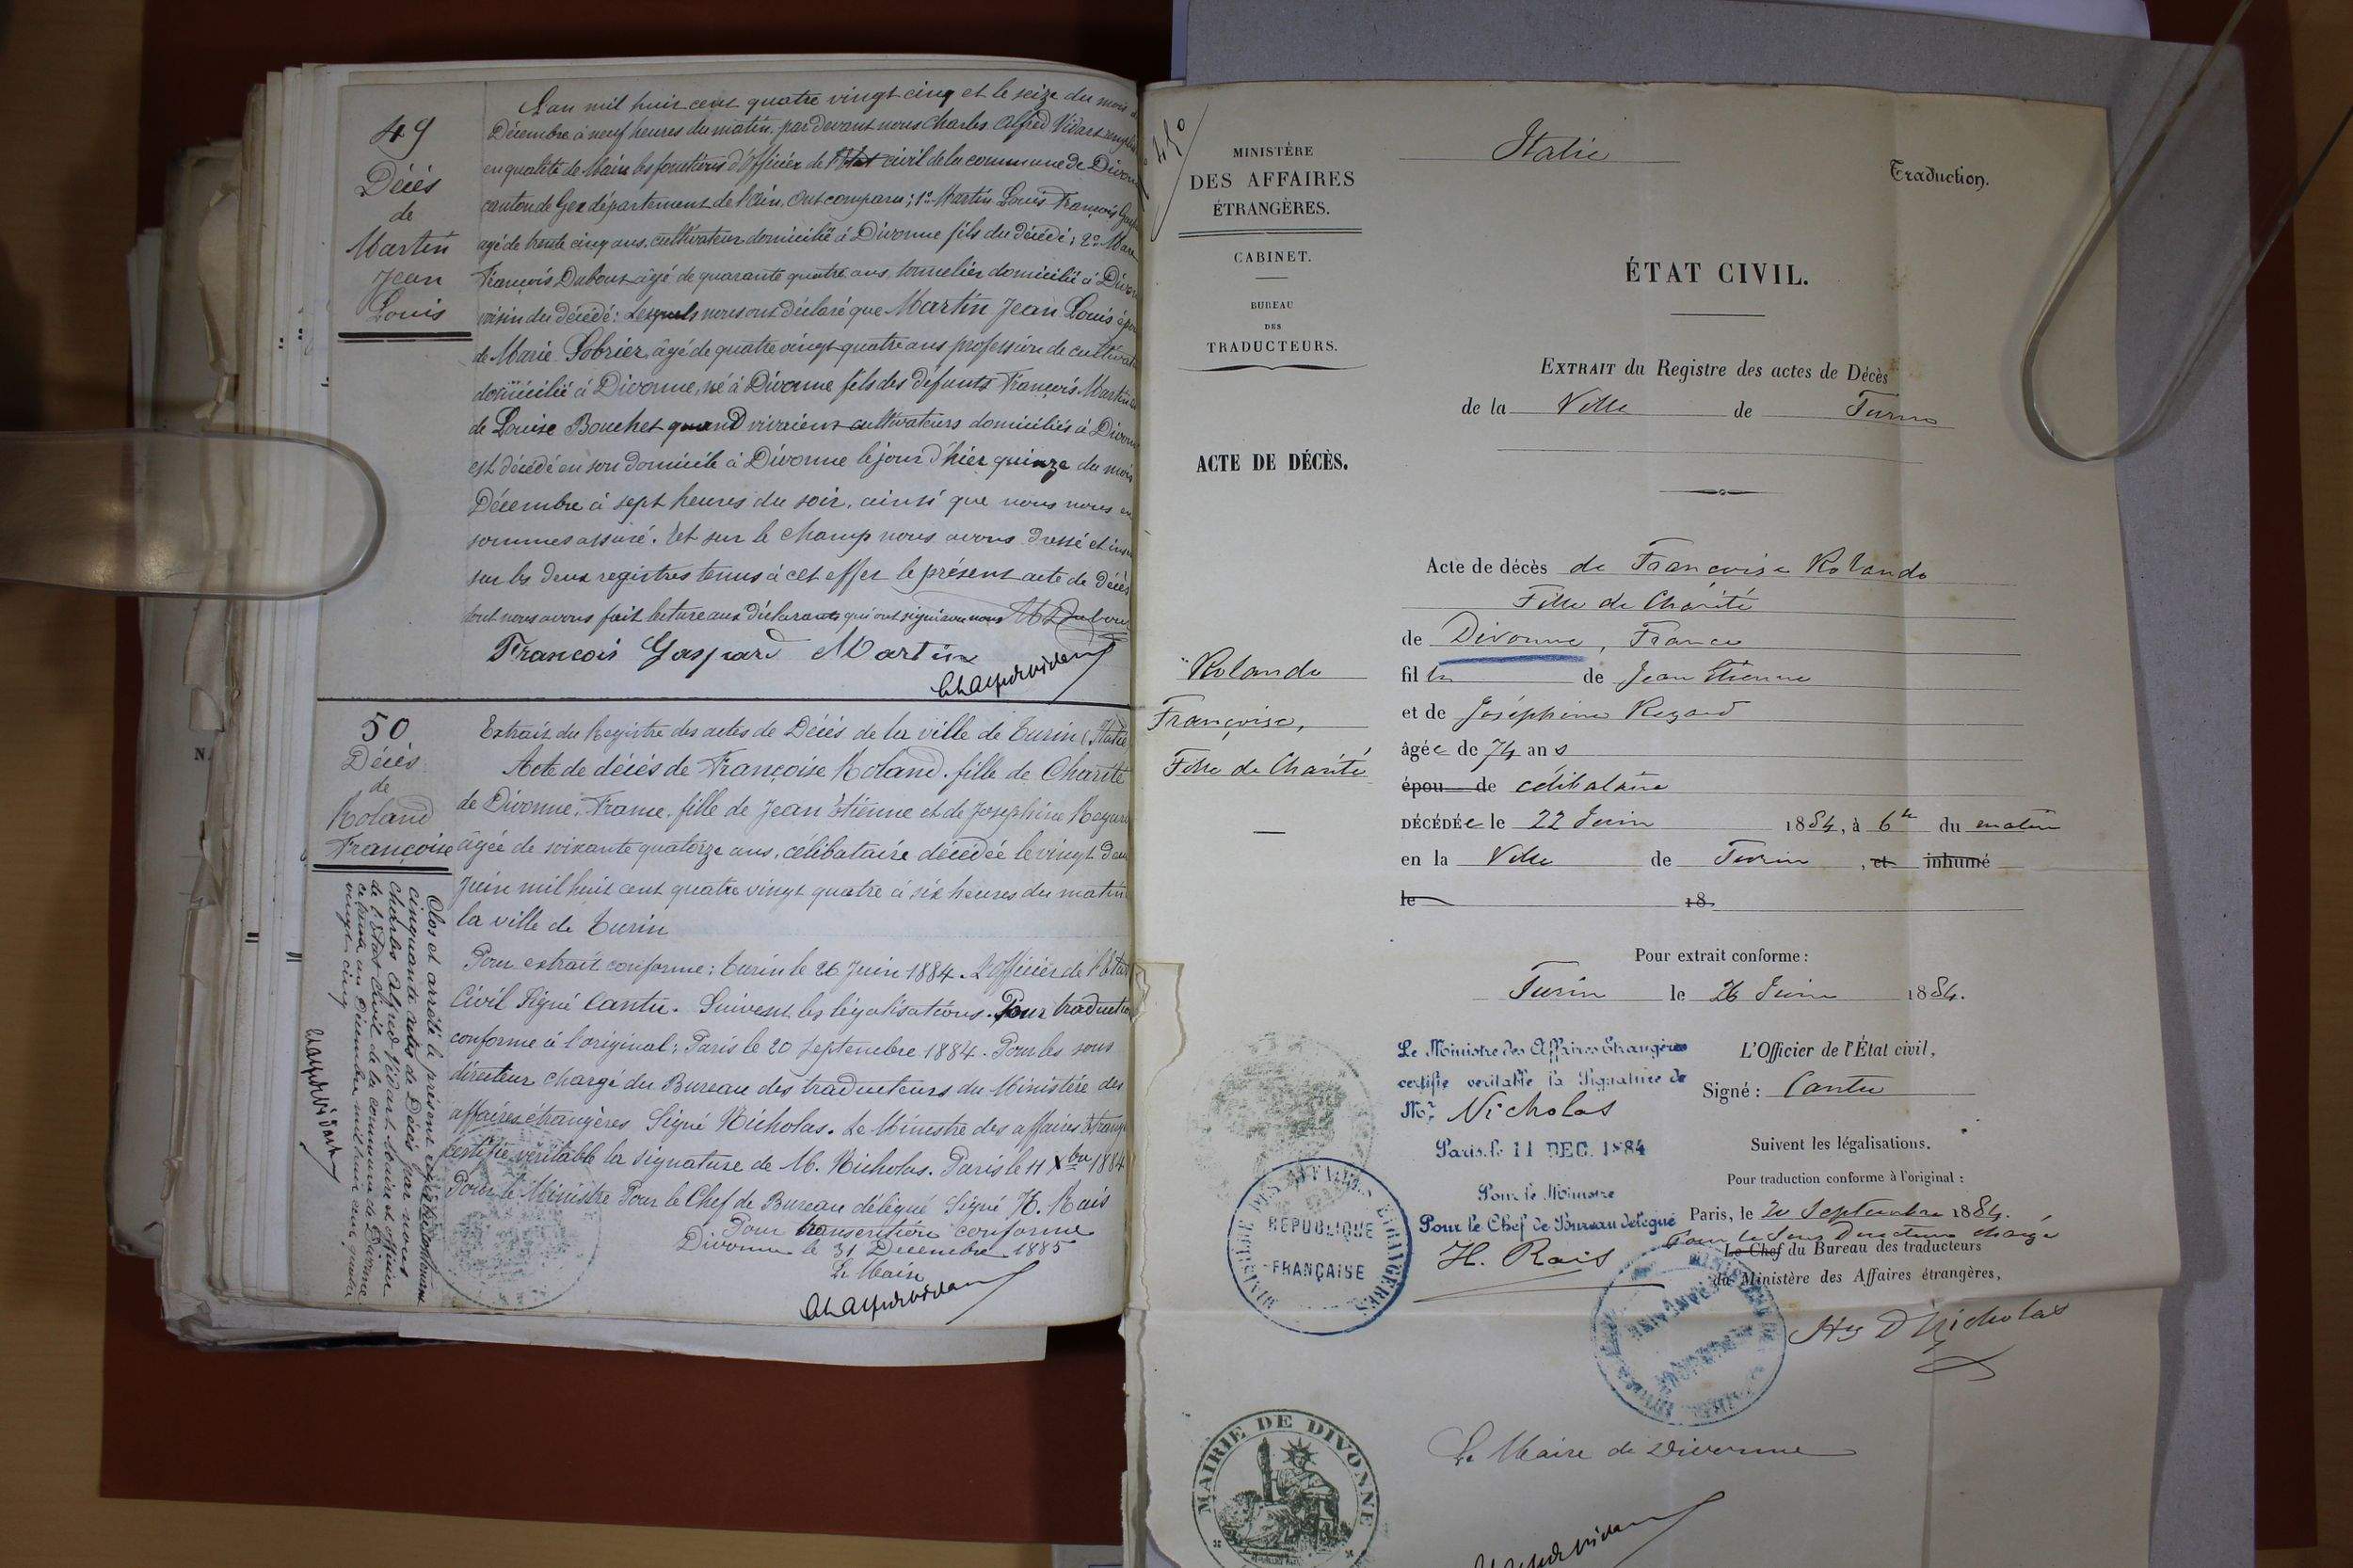 49
Décès
de
Martin
Jean
Louis
L'an mil huit cent quatre vingt cinq et le seize du mois
Décembre à neuf heures du matin, par devant nous Charles Alfred Vidart
en qualité de Maire les fonctions d'Officier de l'Etat civil de la commune de
canton de Gex département de l'Ain, Ont comparu; 1° Martin Louis François
agé de trente cinq ans, cultivateur domicilié à Divonne fils du décédé; 2°
François Dubout agé de quarante quatre ans, tonnelier domicilié à
voisin du décédé: Lesquels nous ont déclaré que Martin Jean Louis
de Marie Sobrier, âgé de quatre vingt quatre ans profession de
domicilié à Divonne, né à Divonne fils des défunts François Martin
de Louise Bouchet quand vivaient cultivateurs domiciliés à
est décédé en son domicile à Divonne le jour d'hier quinze du mois
Décembre à sept heures du soir, ainsi que nous nous en
sommes assuré. Et sur le champ nous avons dressé et
sur les deux registres tenus à cet effet le présent acte de décès
dont nous avons fait lecture aux déclarants qui ont signé avec nous
François Gaspard Martin
50
Décès
de
Roland
Françoise
Extrait du Registre des actes de Décès de la ville de Turin (Italie
Acte de décès de Françoise Roland, fille de Charité
de Divonne, France, fille de Jean Etienne et de Josephine
âgée de soixante quatorze ans, célibataire décédée le vingt
Juin mil huit cent quatre vingt quatre à six heures du matin
la ville de Turin
Pour extrait conforme: Turin le 26 Juin 1884. L'Officier de l'Etat
Civil Signé Cantu. Suivent les légalisations. Pour traduction
conforme à l'original: Paris le 20 Septembre 1884. Pour les sous
directeur chargé du Bureau des traducteurs du Ministère des
affaires étrangères Signé Nicholas. Le Ministre des affaires
certifie véritable la signature de M. Nicholas. Paris le 11 Xbre 1884
Pour le Ministre Pour le Chef de Bureau délégué Signé H. Rais
Pour transcription conforme
Divonne le 31 Décembre 1885
Le Maire
Clos et arrêté le présent registre
cinquante actes de Décès par nous
Charles Alfred Vidart Maire et officier
de l'Etat Civil de la commune de Divonne
ce trente un Décembre mil huit cent quatre
vingt cinq
MINISTÈRE
DES AFFAIRES
ÉTRANGÈRES.
CABINET.
BUREAU
DES
TRADUCTEURS.
ACTE DE DÉCÈS.
Rolando
Françoise,
Fille de Charité
Italie
Traduction.
ÉTAT CIVIL.
EXTRAIT du Registre des actes de Décès
de la Ville de Turin
Acte de décès de Françoise Rolando
Fille de Charité
de Divonne, France
fille de Jean Etienne
et de Joséphine Regard
âgée de 74 ans
épou de célibataire
DÉCÉDÉe le 22 Juin 1884, à 6h du matin
en la Ville de Turin, et inhumé
le 18
Pour extrait conforme:
Turin le 26 Juin 1884.
L'Officier de l'État civil,
Signé: Cantu
Suivent les légalisations.
Pour traduction conforme à l'original:
Paris, le 20 Septembre 1884.
Pour le Sous Directeur chargé
Le Chef du Bureau des traducteurs
du Ministère des Affaires étrangères,
Hy D Nicholas
Le Ministre des Affaires Etrangères
certifie veritable la Signature de
Mr. Nicholas
Paris, le 11 DEC. 1884
Pour le Ministre
Pour le Chef de Bureau délégué
H. Rais
MINISTÈRE DES AFFAIRES ETRANGÈRES
RÉPUBLIQUE
FRANÇAISE
Le Maire de Divonne
MAIRIE DE DIVONNE